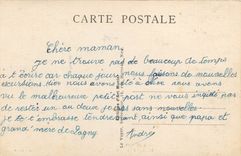 CARTE POSTALE
Chère maman
Je ne trouve pas de beaucoup de temps
à t'écrire car chaque jours nous faisons de nouvelles
excursions. hier nous avons été à
vu le malheureux petit post ne vous inquiété pas
de resté un ou deux jours sans nouvelles
je t'embrasse tendrement ainsi que papa et
grand'mère de Lagny
André